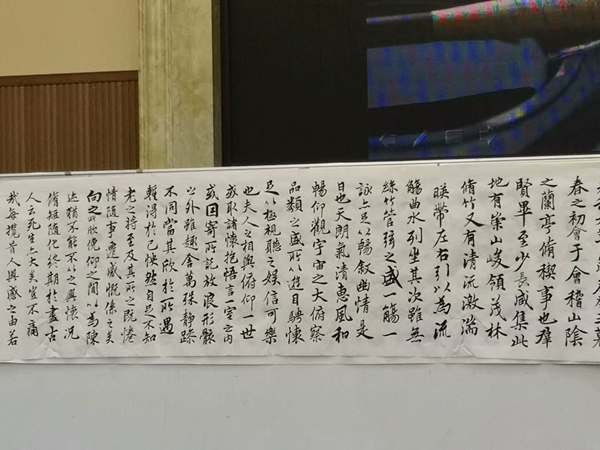 春之初會于會稽山陰
之蘭亭脩稧事也羣
賢畢至少長咸集此
地有崇山峻領茂林
脩竹又有清流激湍
暎帶左右引以為流
觴曲水列坐其次雖無
絲竹管弦之盛一觴一
詠亦足以暢叙幽情是
日也天朗氣清惠風和
暢仰觀宇宙之大俯察
品類之盛所以遊目騁懷
足以極視聽之娛信可樂
也夫人之相與俯仰一世
或取諸懷抱悟言一室之內
或因寄所託放浪形骸
之外雖趣舍萬殊靜躁
不同當其欣於所遇
暫得於己怏然自足不知
老之將至及其所之既惓
情隨事遷感慨係之矣
向之所欣俛仰之閒以為陳
迹猶不能不以之興懷況
脩短隨化終期於盡古
人云死生亦大矣豈不痛
哉每攬昔人興感之由若